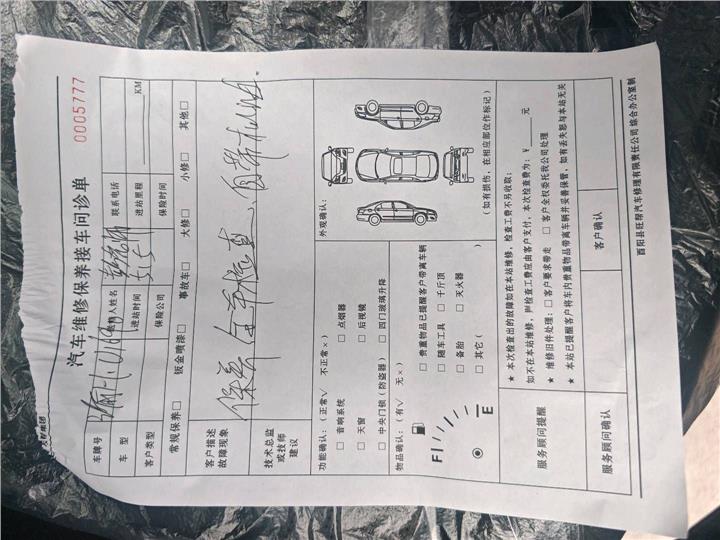 汽车维修保养接车问诊单
0005777
车牌号 送修人姓名 联系电话
车型 进站时间 进站里程 KM
客户类型 保险公司 保险时间
常规保养□ 钣金喷漆□ 事故车□ 大修□ 小修□ 其他□
客户描述
故障现象
保养 全车检查、自带机油.
技术总监
或技师
建议
功能确认：（正常√ 不正常×）
□ 音响系统 □ 点烟器
□ 天窗 □ 后视镜
□ 中央门锁（防盗器） □ 四门玻璃升降
外观确认：
（如有损伤，在相应部位作标记）
物品确认：（有√ 无×）
F E
□ 贵重物品已提醒客户带离车辆
□ 随车工具 □ 千斤顶
□ 备胎 □ 灭火器
□ 其它（ ）
服务顾问提醒
★ 本次检查出的故障如在本站维修，检查工费不另收取；
如不在本站维修，则检查工费应由客户支付，本次检查费为：￥ 元
★ 维修旧件处理：□ 客户要求带走 □ 客户全权委托我公司处理
★ 本站已提醒客户将车内贵重物品带离车辆并妥善保管，如有丢失恕与本站无关
服务顾问确认 客户确认
酉阳县旺帮汽车修理有限责任公司 综合办公室制